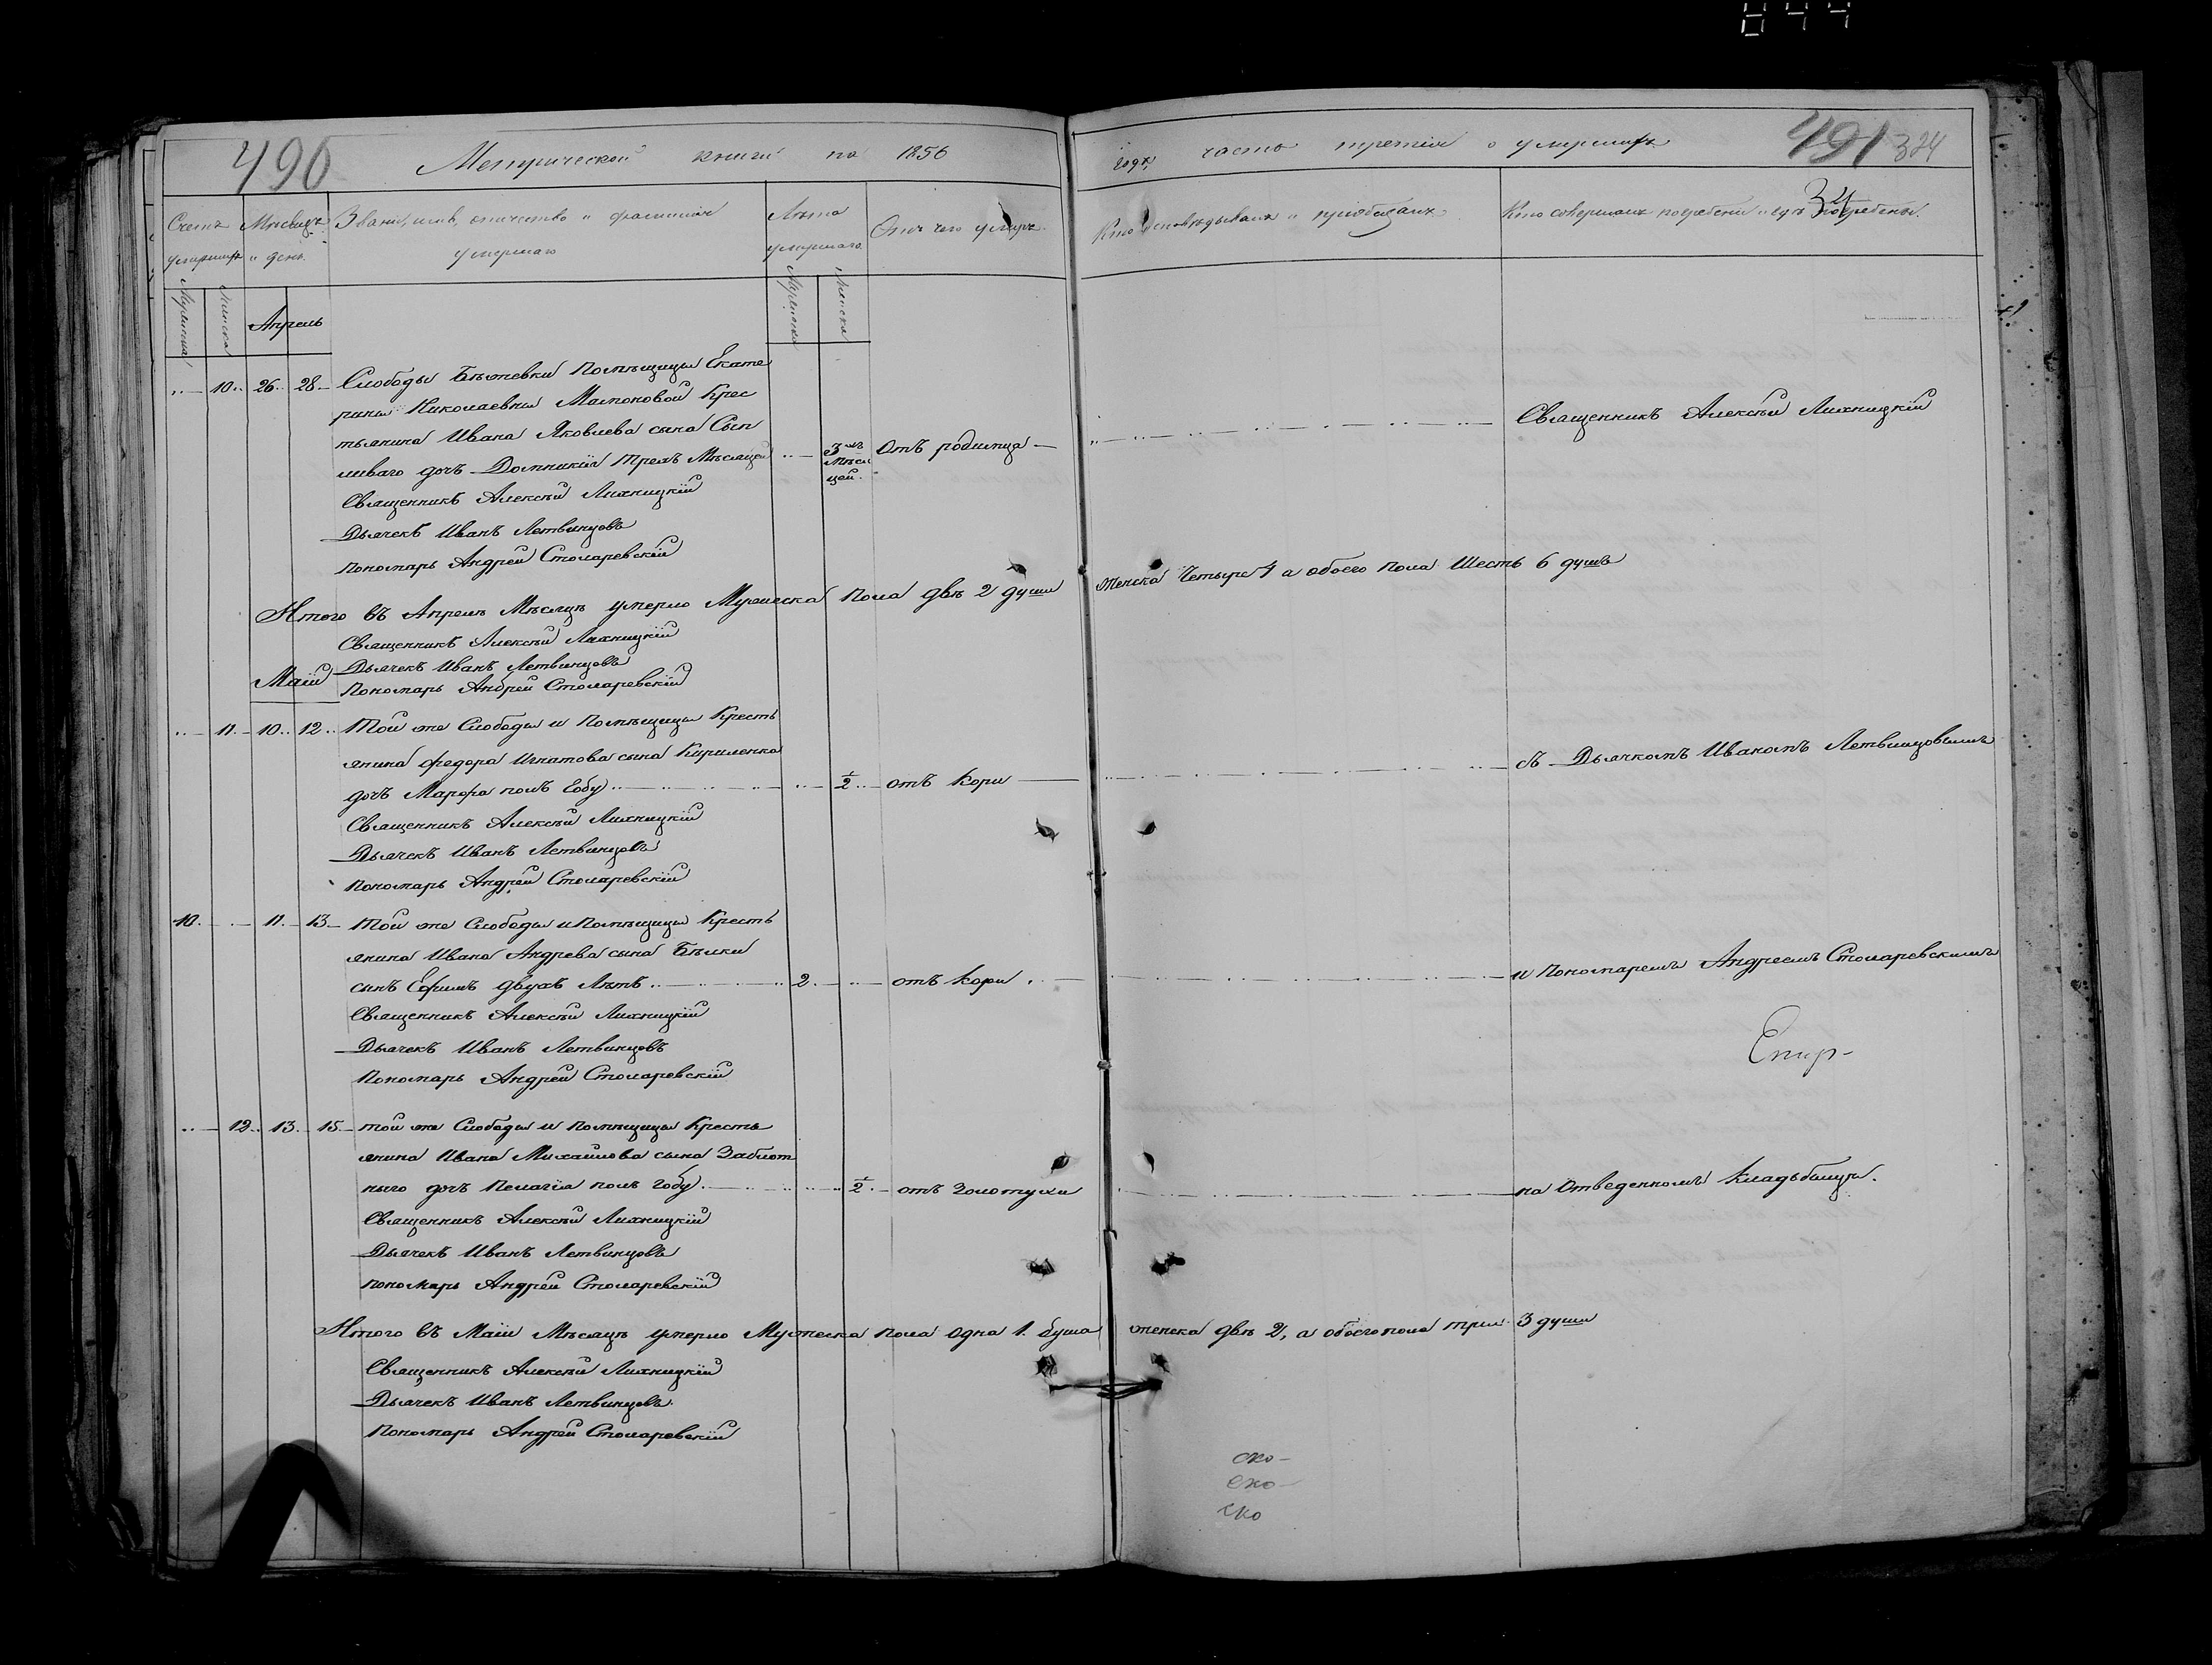 844
490
Метрической книги на 1856
года часть третія о умершихъ
491 324
34
Счетъ умершихъ
Мѣсяцъ и день.
Званіе, имя, отчество и фамилія умершаго
Лѣта умершаго
Отъ чего умеръ.
Кто исповѣдывалъ и пріобщалъ.
Кто совершалъ погребеніе и гдѣ погребены.
Мужеска
Женска
Апрель
Мужеска
Женска
10. 26. 28. Слободы Бѣжевки Помѣщицы Екате
рины Николаевны Мамоновой Крес
тьянина Ивана Яковлева сына Сып
ливаго дочь Домникія трехъ Мѣсяцей 3хъ Мѣся цей. Отъ родимца
Священникъ Алексѣй Лихницкій
Священникъ Алексѣй Лихницкій
Дьячекъ Иванъ Летвинцовъ
Пономарь Андрей Столаревскій
Итого въ Апрелѣ Мѣсяцѣ умерло Мужеска Пола двѣ 2 души женска Четыре 4 а обоего пола Шесть 6 душъ
Священникъ Алексѣй Лихницкій
Дьячекъ Иванъ Летвинцовъ
Маій
Пономарь Андрей Столаревскій
11. 10. 12. Той же Слободы и Помѣщицы Кресть
янина Федора Игнатова сына Кириленка
дочь Марфа полъ Году 1/2 отъ Кори съ Дьячкомъ Иваномъ Летвинцовымъ
Священникъ Алексѣй Лихницкій
Дьячекъ Иванъ Летвинцовъ
Пономарь Андрей Столаревскій
10. 11. 13. Той же Слободы и Помѣщицы Кресть
янина Ивана Андрева сына Бѣлки
сынъ Ефимъ двухъ Лѣтъ 2. отъ Кори и Пономаремъ Андреемъ Столаревскимъ
Священникъ Алексѣй Лихницкій
Дьячекъ Иванъ Летвинцовъ
Пономарь Андрей Столаревскій
12. 13. 15. той же Слободы и Помѣщицы Кресть
янина Ивана Михайлова сына Заблот
ныго дочь Пелагія полъ Году 1/2 отъ Золотухи на Отведенномъ Кладьбищѣ.
Священникъ Алексѣй Лихницкій
Дьячекъ Иванъ Летвинцовъ
пономарь Андрей Столаревскій
Итого въ Маіи Мѣсяцѣ умерло Мужеска пола одна 1. душа женска двѣ 2, а обоего пола три 3 души
Священникъ Алексѣй Лихницкій
Дьячекъ Иванъ Летвинцовъ.
Пономарь Андрей Столаревскій
ско
ско
ско